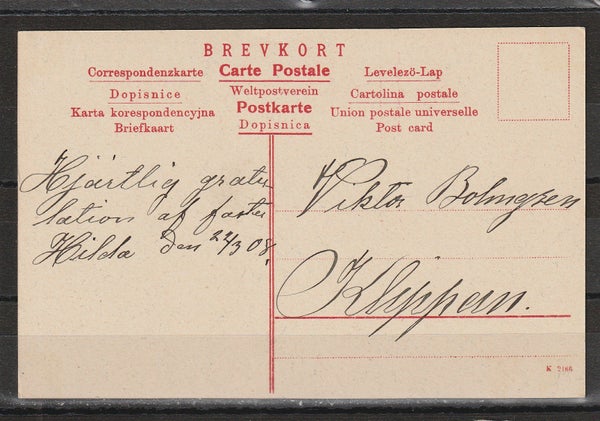 BREVKORT
Correspondenzkarte Carte Postale Levelező-Lap
Dopisnice Weltpostverein Cartolina postale
Karta korespondencyjna Postkarte Union postale universelle
Briefkaart Dopisnica Post card
Hjärtlig gratu
lation af faster
Hilda den 22/3 08.
Viktor
Klippan.
K 2166